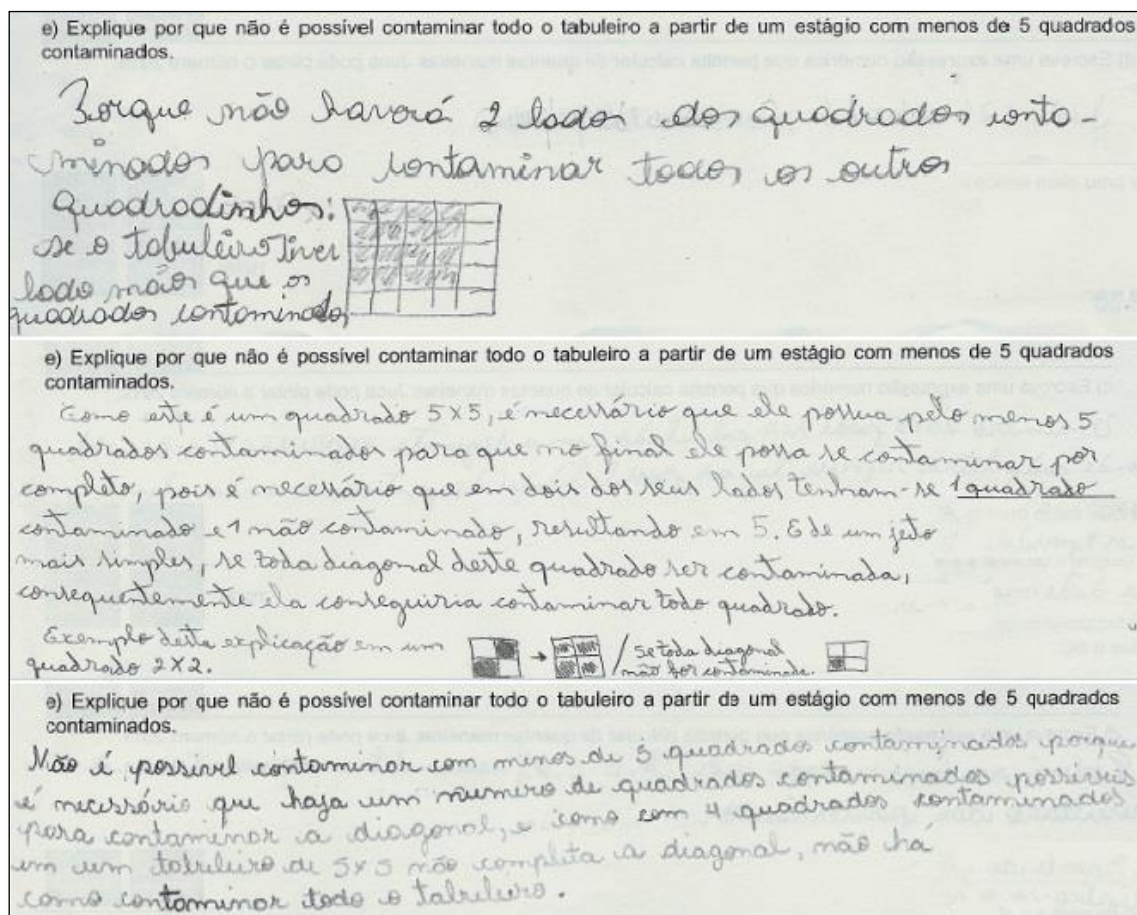 e) Explique por que não é possível contaminar todo o tabuleiro a partir de um estágio com menos de 5 quadrados
contaminados.
Porque não haverá 2 lados dos quadrados conta-
minados para contaminar todos os outros
quadradinhos:
se o tabuleiro tiver
lado maior que os
quadrados contaminados
e) Explique por que não é possível contaminar todo o tabuleiro a partir de um estágio com menos de 5 quadrados
contaminados.
Como este é um quadrado 5x5, é necessário que ele possua pelo menos 5
quadrados contaminados para que no final ele possa se contaminar por
completo, pois é necessário que em dois dos seus lados tenham-se 1 quadrado
contaminado e 1 não contaminado, resultando em 5. E de um jeito
mais simples, se toda diagonal deste quadrado ser contaminada,
consequentemente ela conseguiria contaminar todo quadrado.
Exemplo desta explicação em um
quadrado 2x2.
/ se toda diagonal
não for contaminada.
e) Explique por que não é possível contaminar todo o tabuleiro a partir de um estágio com menos de 5 quadrados
contaminados.
Não é possivel contaminar com menos de 5 quadrados contaminados porque
é necessário que haja um numero de quadrados contaminados possiveis
para contaminar a diagonal, e como com 4 quadrados contaminados
em um tabuleiro de 5x5 não completa a diagonal, não há
como contaminar todo o tabuleiro.